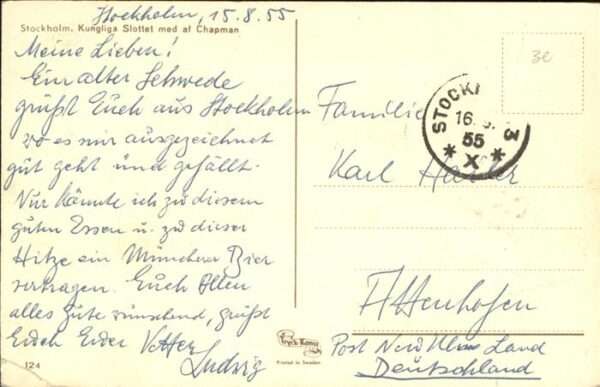 Stockholm, 15.8.55
Stockholm, Kungliga Slottet med af Chapman
Meine Lieben!
Ein alter Schwede
grüßt Euch aus Stockholm
wo es mir ausgezeichnet
gut geht und gefällt.
Nur könnte ich zu diesem
guten Essen u. zu dieser
Hitze ein Münchener Bier
vertragen. Euch Allen
alles Gute wünschend, grüßt
Euch Euer Vetter
Ludwig
124
Printed in Sweden
30
STOCK 3
16. 8.
55
* X *
Familie
Karl
Attenhofen
Post Land
Deutschland